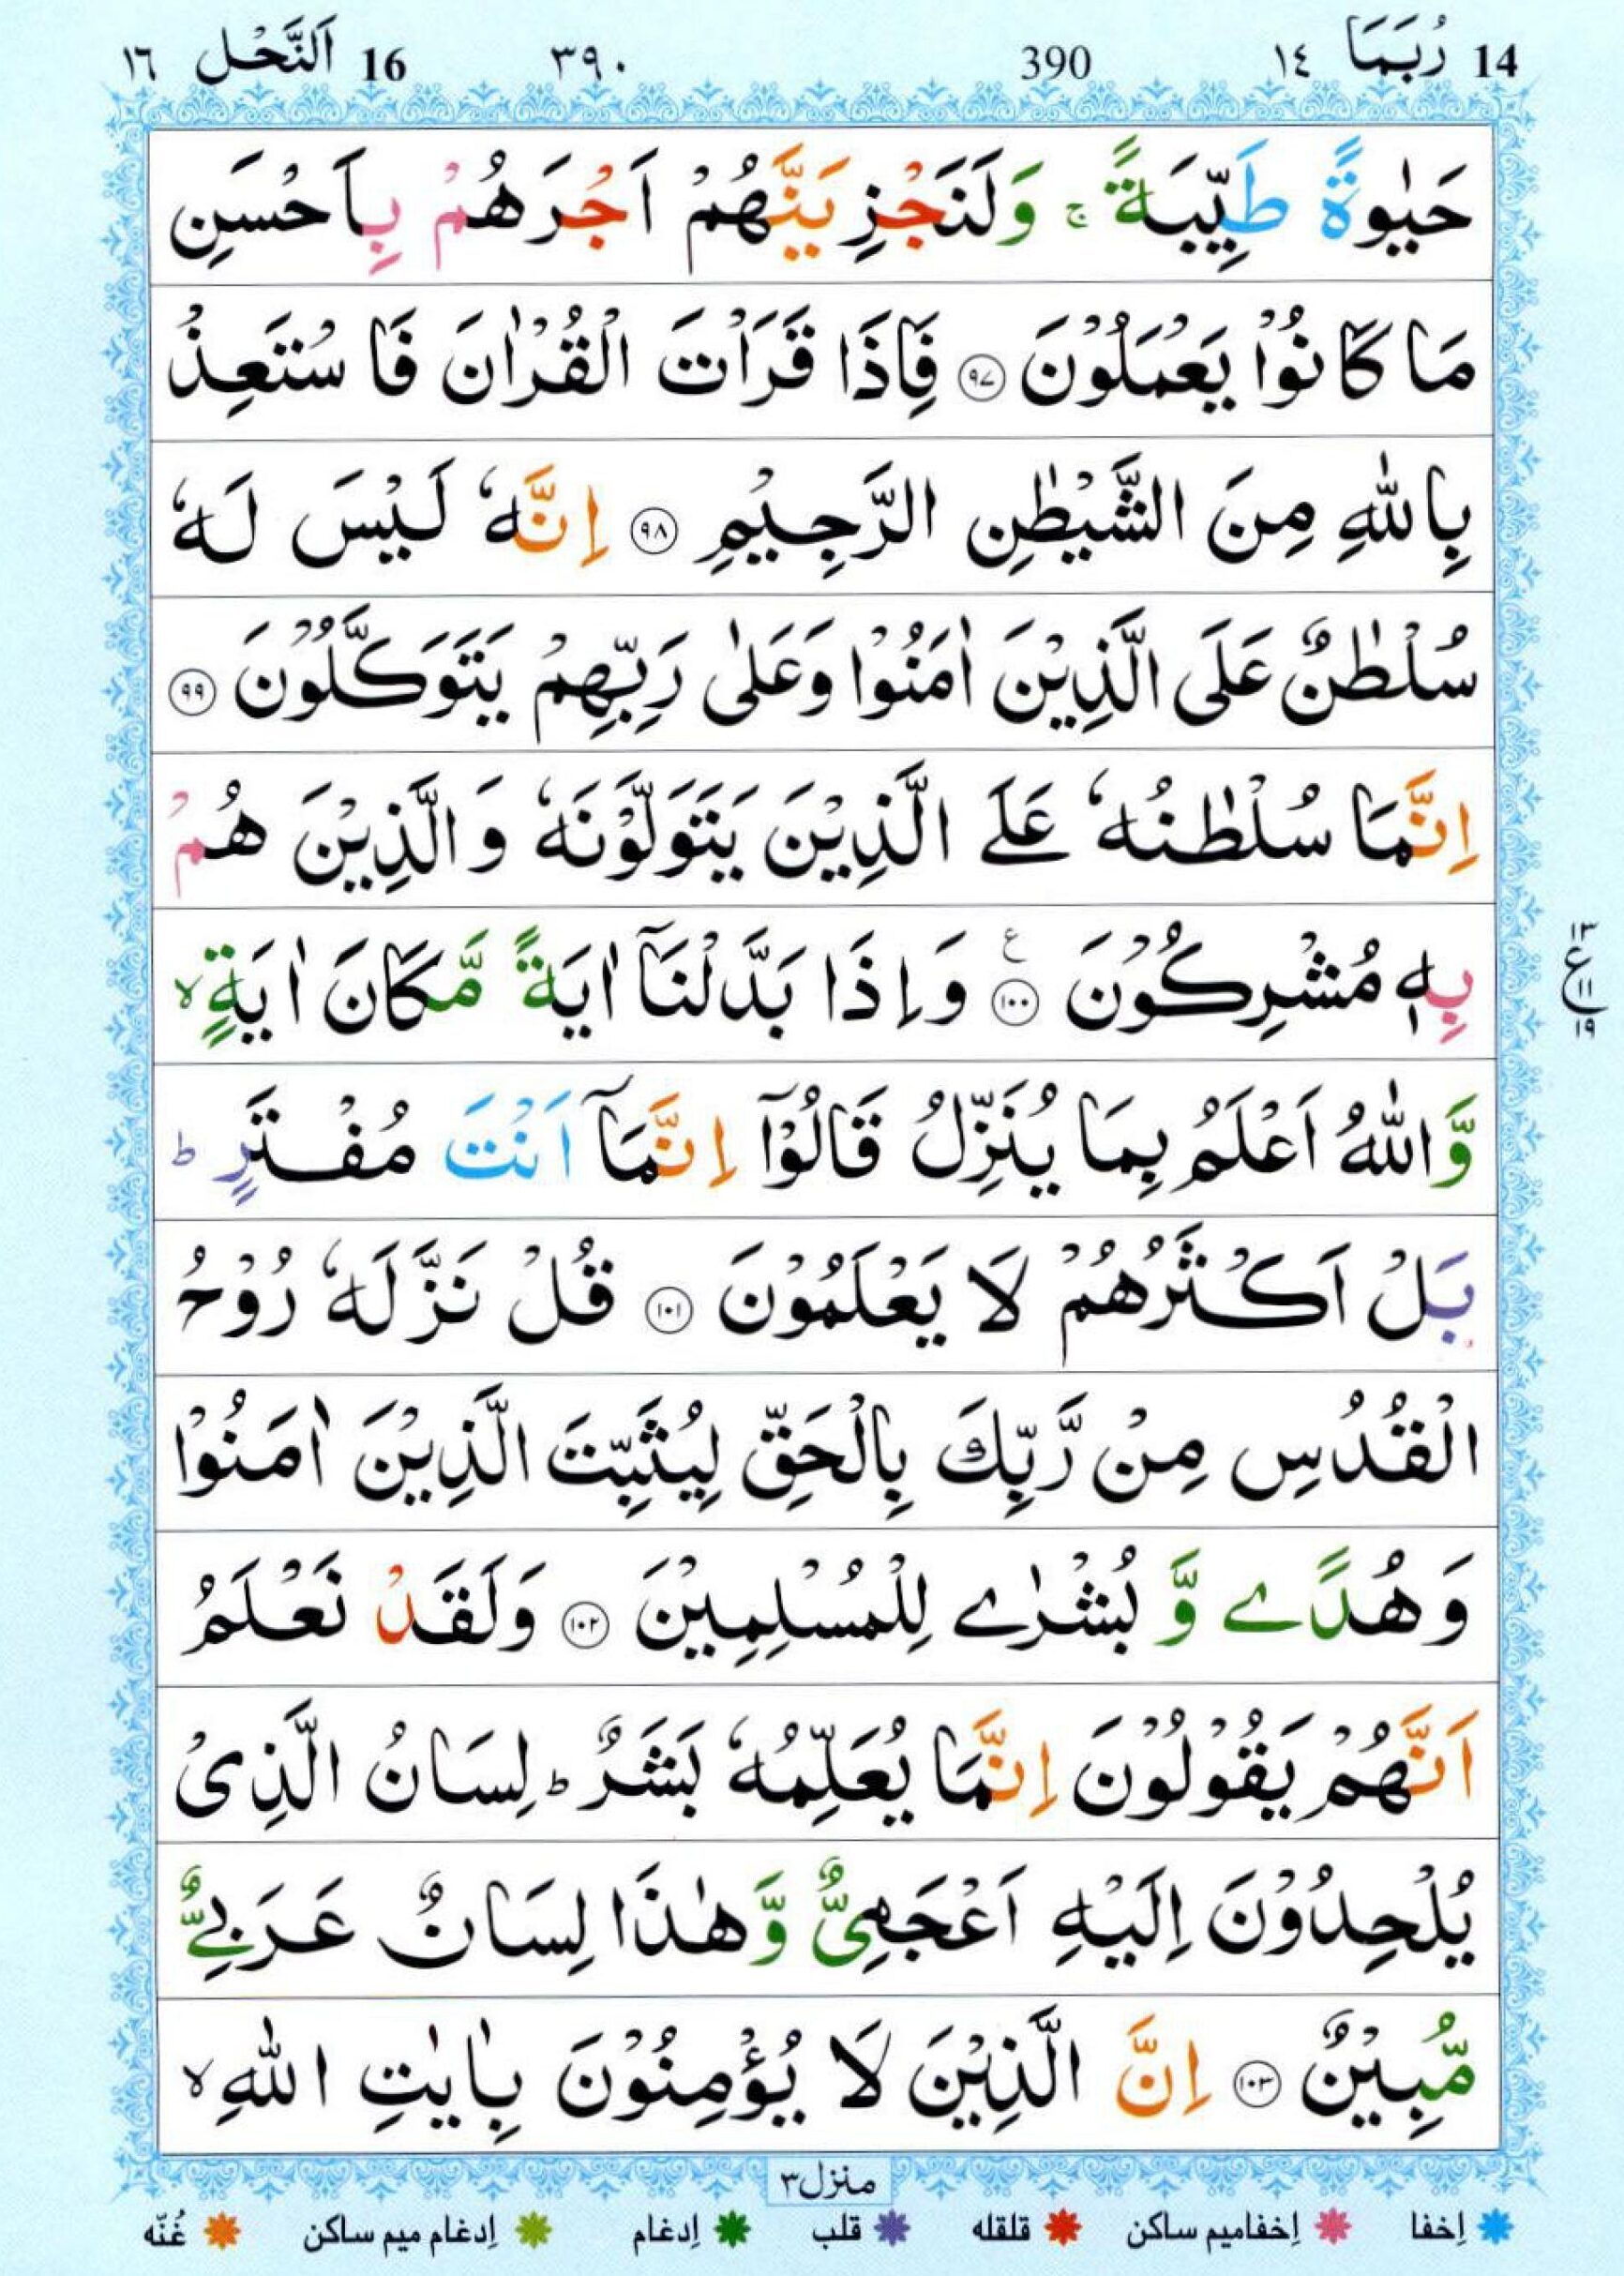 14 رُبَمَا ١٤ 390 ٣٩٠ 16 اَلنَّحْل ١٦
حَيٰوةً طَيِّبَةً ۚ وَلَنَجْزِيَنَّهُمْ اَجْرَهُمْ بِاَحْسَنِ
مَا كَانُوْا يَعْمَلُوْنَ ۝٩٧ فَاِذَا قَرَاْتَ الْقُرْاٰنَ فَاسْتَعِذْ
بِاللّٰهِ مِنَ الشَّيْطٰنِ الرَّجِيْمِ ۝٩٨ اِنَّهٗ لَيْسَ لَهٗ
سُلْطٰنٌ عَلَى الَّذِيْنَ اٰمَنُوْا وَعَلٰى رَبِّهِمْ يَتَوَكَّلُوْنَ ۝٩٩
اِنَّمَا سُلْطٰنُهٗ عَلَے الَّذِيْنَ يَتَوَلَّوْنَهٗ وَالَّذِيْنَ هُمْ
بِهٖ مُشْرِكُوْنَ ۝١٠٠ ع وَاِذَا بَدَّلْنَاۤ اٰيَةً مَّكَانَ اٰيَةٍ ۙ
١٣ ع ١١ ١٩
وَّاللّٰهُ اَعْلَمُ بِمَا يُنَزِّلُ قَالُوْۤا اِنَّمَاۤ اَنْتَ مُفْتَرٍ ؕ
بَلْ اَكْثَرُهُمْ لَا يَعْلَمُوْنَ ۝١٠١ قُلْ نَزَّلَهٗ رُوْحُ
الْقُدُسِ مِنْ رَّبِّكَ بِالْحَقِّ لِيُثَبِّتَ الَّذِيْنَ اٰمَنُوْا
وَهُدًے وَّ بُشْرٰے لِلْمُسْلِمِيْنَ ۝١٠٢ وَلَقَدْ نَعْلَمُ
اَنَّهُمْ يَقُوْلُوْنَ اِنَّمَا يُعَلِّمُهٗ بَشَرٌ ؕ لِسَانُ الَّذِىْ
يُلْحِدُوْنَ اِلَيْهِ اَعْجَمِىٌّ وَّهٰذَا لِسَانٌ عَرَبِےٌّ
مُّبِيْنٌ ۝١٠٣ اِنَّ الَّذِيْنَ لَا يُؤْمِنُوْنَ بِاٰيٰتِ اللّٰهِ ۙ
منزل ٣
اِخفا اِخفامیم ساکن قلقله قلب اِدغام اِدغام میم ساکن غُنّه